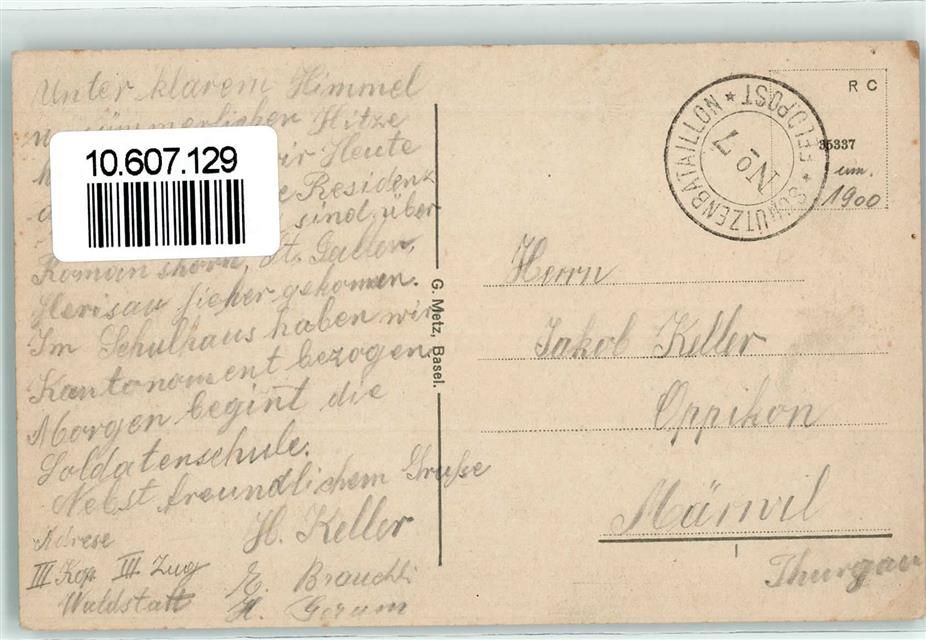 Unter klarem Himmel
u. sömmerlicher Hitze
wir Heute
Residenz
sind über
Romanshorn, St. Gallen,
Herisau hieher gekomen.
Im Schulhaus haben wir
Kantonament bezogen.
Morgen begint die
Soldatenschule.
Nebst freundlichem Gruße
H. Keller
E. Brauchli
H.
Adrese
III Kop. III. Zug
Waldstatt
10.607.129
G. Metz, Basel.
SCHÜTZENBATAILLON * FELDPOST *
No 7
R C
35337
um.
1900
Herrn
Jakob Keller
Oppikon
Märwil
Thurgau